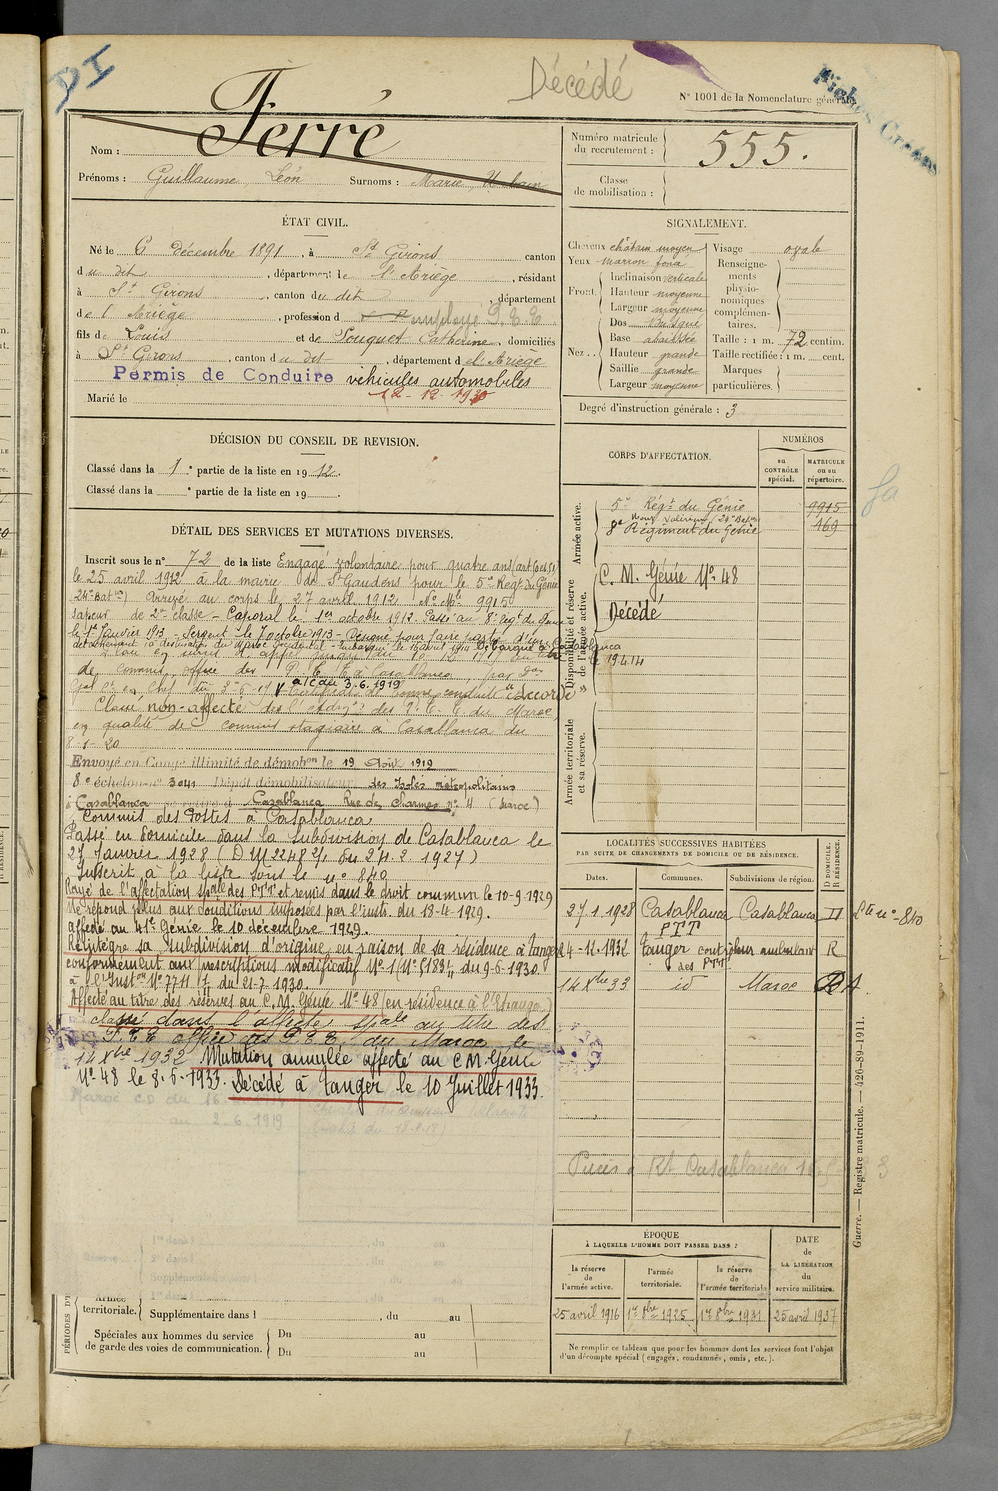 DI
Décédé
N° 1001 de la Nomenclature générale
Fiches Créées
Nom : Ferré
Prénoms : Guillaume, Léon Surnoms : Marie, Urbain
Numéro matricule du recrutement : 555.
Classe de mobilisation :
ÉTAT CIVIL.
Né le 6 décembre 1891, à St Girons canton
du dit, département de l'Ariège, résidant
à St Girons, canton du dit, département
de l'Ariège, profession d employé P.T.T.
fils de Louis et de Souquet Catherine, domiciliés
à St Girons, canton du dit, département de l'Ariège
Permis de Conduire véhicules automobiles
12-12-1930
Marié le
SIGNALEMENT.
Cheveux châtain moyen
Yeux marron foncé
Front. Inclinaison verticale
Hauteur moyenne
Largeur moyenne
Nez. Dos Busqué
Base abaissée
Hauteur grande
Saillie grande
Largeur moyenne
Visage ovale
Renseignements physionomiques complémentaires.
Taille : 1 m. 72 centim.
Taille rectifiée : 1 m. cent.
Marques particulières.
Degré d'instruction générale : 3
DÉCISION DU CONSEIL DE REVISION.
Classé dans la 1e partie de la liste en 1912.
Classé dans la e partie de la liste en 19 .
CORPS D'AFFECTATION.
NUMÉROS
au CONTRÔLE spécial.
MATRICULE ou au répertoire.
Armée active.
5e Régt du Génie 9915
8e Régiment du Génie 169
Disponibilité et réserve de l'armée active.
C. M. Génie No 48
Décédé
Armée territoriale et sa réserve.
DÉTAIL DES SERVICES ET MUTATIONS DIVERSES.
Inscrit sous le n° 72 de la liste Engagé volontaire pour quatre ans
le 25 avril 1912 à la mairie de St Gaudens pour le 5e Régt du Génie
24e Baton) Arrivé au corps le 27 avril 1912 No Mle 9915
Sapeur de 2e classe - Caporal le 1er octobre 1912. Passé au 8e Régt du Génie
le 1er Janvier 1913 - Sergent le 7 octobre 1913 - Désigné pour faire partie d'un
détachement à destination du Maroc Occidental - Embarqué le 16 avril 1914 Débarqué à Casablanca
le 19.4.14
de commis office des P.T.T. à Casablanca, par
Gal Ct en Chef du 3-6-19 Certificat de bonne conduite "Accordé"
Classé non-affecté des P.T.T. du Maroc,
en qualité de commis stagiaire à Casablanca du
8-1-20
Envoyé en Congé illimité de démobon le 19 Août 1919
8e échelon n° 3041 Dépôt démobilisateur des Isolés métropolitains
à Casablanca se retire à Casablanca Rue des Charmes n° 4 (Maroc)
Commis des Postes à Casablanca
Passé en domicile dans la subdivision de Casablanca le
27 Janvier 1928 (D M 2248 2/1 du 24.2 1927)
Inscrit à la liste sous le n° 840
Rayé de l'affectation spale des PTT et remis dans le droit commun le 10-9-1929
Ne répond plus aux conditions imposées par l'insti. du 18-4-1929.
affecté au 41e Génie le 10 décembre 1929.
Réintègre sa subdivision d'origine en raison de sa résidence à Tanger
conformément aux prescriptions modificatif No 1 No 5183 du 9-6-1930
à l'Inston No 7711 du 21-7-1930.
Affecté au titre des réserves au C.M. Génie No 48 (en résidence à l'Etranger)
classé dans l'affecté spale au titre des
P.T.T. office des P.T.T. du Maroc le
14 Xbre 1932 Mutation annullé affecté au C M Génie
No 48 le 8-6-1933. Décédé à Tanger le 10 Juillet 1933.
au 2-6.1919
LOCALITÉS SUCCESSIVES HABITÉES
PAR SUITE DE CHANGEMENTS DE DOMICILE OU DE RÉSIDENCE.
Dates. Communes. Subdivisions de région. D DOMICILE. R RÉSIDENCE.
27.1.1928 Casablanca Casablanca D Lte n° 840
PTT
4-12-1932 Tanger controleur ambulant R
des PTT
14 Xbre 33 id Maroc RA.
Casablanca
ÉPOQUE
À LAQUELLE L'HOMME DOIT PASSER DANS :
la réserve de l'armée active.
l'armée territoriale.
la réserve de l'armée territoriale.
DATE de LA LIBÉRATION du service militaire.
25 avril 1916 1er 8bre 1925 1er 8bre 1931 25 avril 1937
Ne remplir ce tableau que pour les hommes dont les services font l'objet
d'un décompte spécial (engagés, condamnés, omis, etc.).
Armée territoriale. Supplémentaire dans l , du au
Spéciales aux hommes du service de garde des voies de communication. Du au
Du au
Guerre. — Registre matricule. — 426-89-1911.